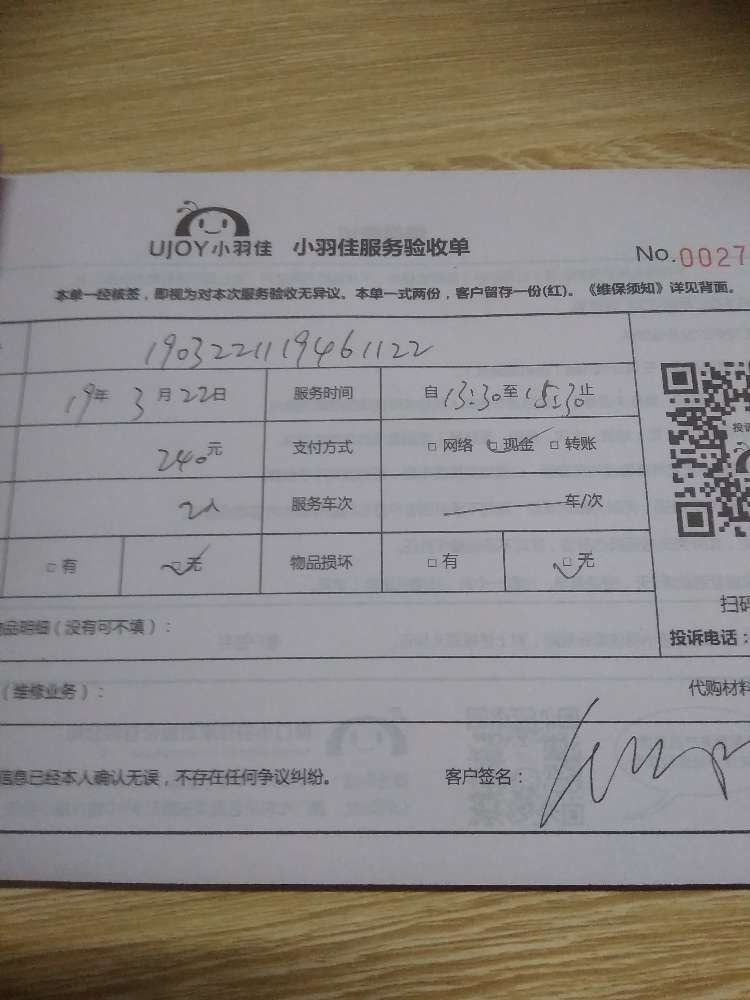 UJOY小羽佳 小羽佳服务验收单 No.0027
本单一经核签，即视为对本次服务验收无异议。本单一式两份，客户留存一份(红)。《维保须知》详见背面。
1903221119461122
19年 3月22日 服务时间 自13:30至15:30止
240元 支付方式 □网络 □现金 □转账
2人 服务车次 车/次
□有 □无 物品损坏 □有 □无
品明细（没有可不填）： 扫码
投诉电话：
（维修业务）： 代购材料
信息已经本人确认无误，不存在任何争议纠纷。 客户签名：